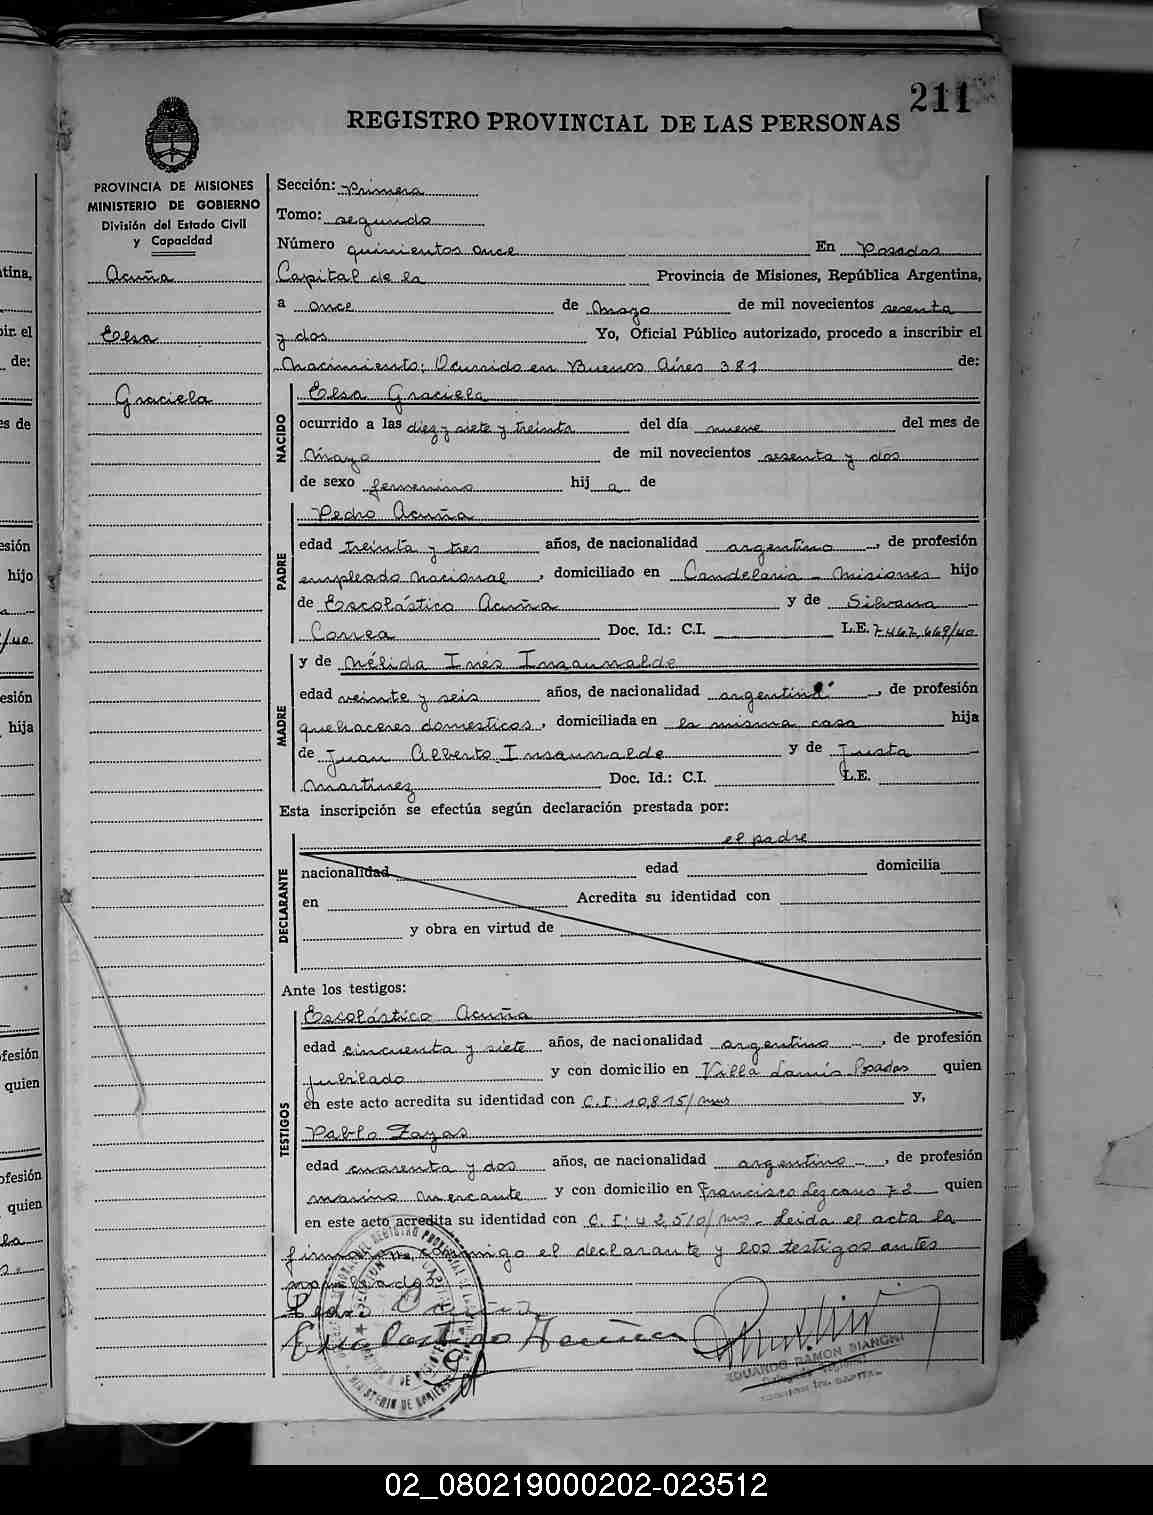 211
REGISTRO PROVINCIAL DE LAS PERSONAS
PROVINCIA DE MISIONES
MINISTERIO DE GOBIERNO
División del Estado Civil
y Capacidad
Acuña
Elsa
Graciela
Sección: Primera
Tomo: segundo
Número quinientos once En Posadas
Capital de la Provincia de Misiones, República Argentina,
a once de Mayo de mil novecientos sesenta
y dos Yo, Oficial Público autorizado, procedo a inscribir el
Nacimiento: Ocurrido en Buenos Aires 381 de:
NACIDO
Elsa Graciela
ocurrido a las diez y siete y treinta del día nueve del mes de
Mayo de mil novecientos sesenta y dos
de sexo femenino hij a de
PADRE
Pedro Acuña
edad treinta y tres años, de nacionalidad argentino, de profesión
empleado nacional, domiciliado en Candelaria - Misiones hijo
de Escolástico Acuña y de Silvana
Correa Doc. Id.: C.I. L.E. 7.467.669/40
MADRE
y de Nélida Inés Insaurralde
edad veinte y seis años, de nacionalidad argentina, de profesión
quehaceres domesticos, domiciliada en la misma casa hija
de Juan Alberto Insaurralde y de Justa
Martinez Doc. Id.: C.I. L.E.
Esta inscripción se efectúa según declaración prestada por:
DECLARANTE
el padre
nacionalidad edad domicilia
en Acredita su identidad con
y obra en virtud de
Ante los testigos:
TESTIGOS
Escolástico Acuña
edad cincuenta y siete años, de nacionalidad argentino, de profesión
jubilado y con domicilio en Villa Lanús Posadas quien
en este acto acredita su identidad con C.I: 10,815/mns y,
Pablo Zayas
edad cuarenta y dos años, de nacionalidad argentino, de profesión
marino mercante y con domicilio en Francisco Lezcano 72 quien
en este acto acredita su identidad con C.I: 42,510/mns. Leida el acta la
firman conmigo el declarante y los testigos antes
nombrados
Pedro Acuña
Escolastico Acuña
EDUARDO RAMON BIANCHI
02_080219000202-023512